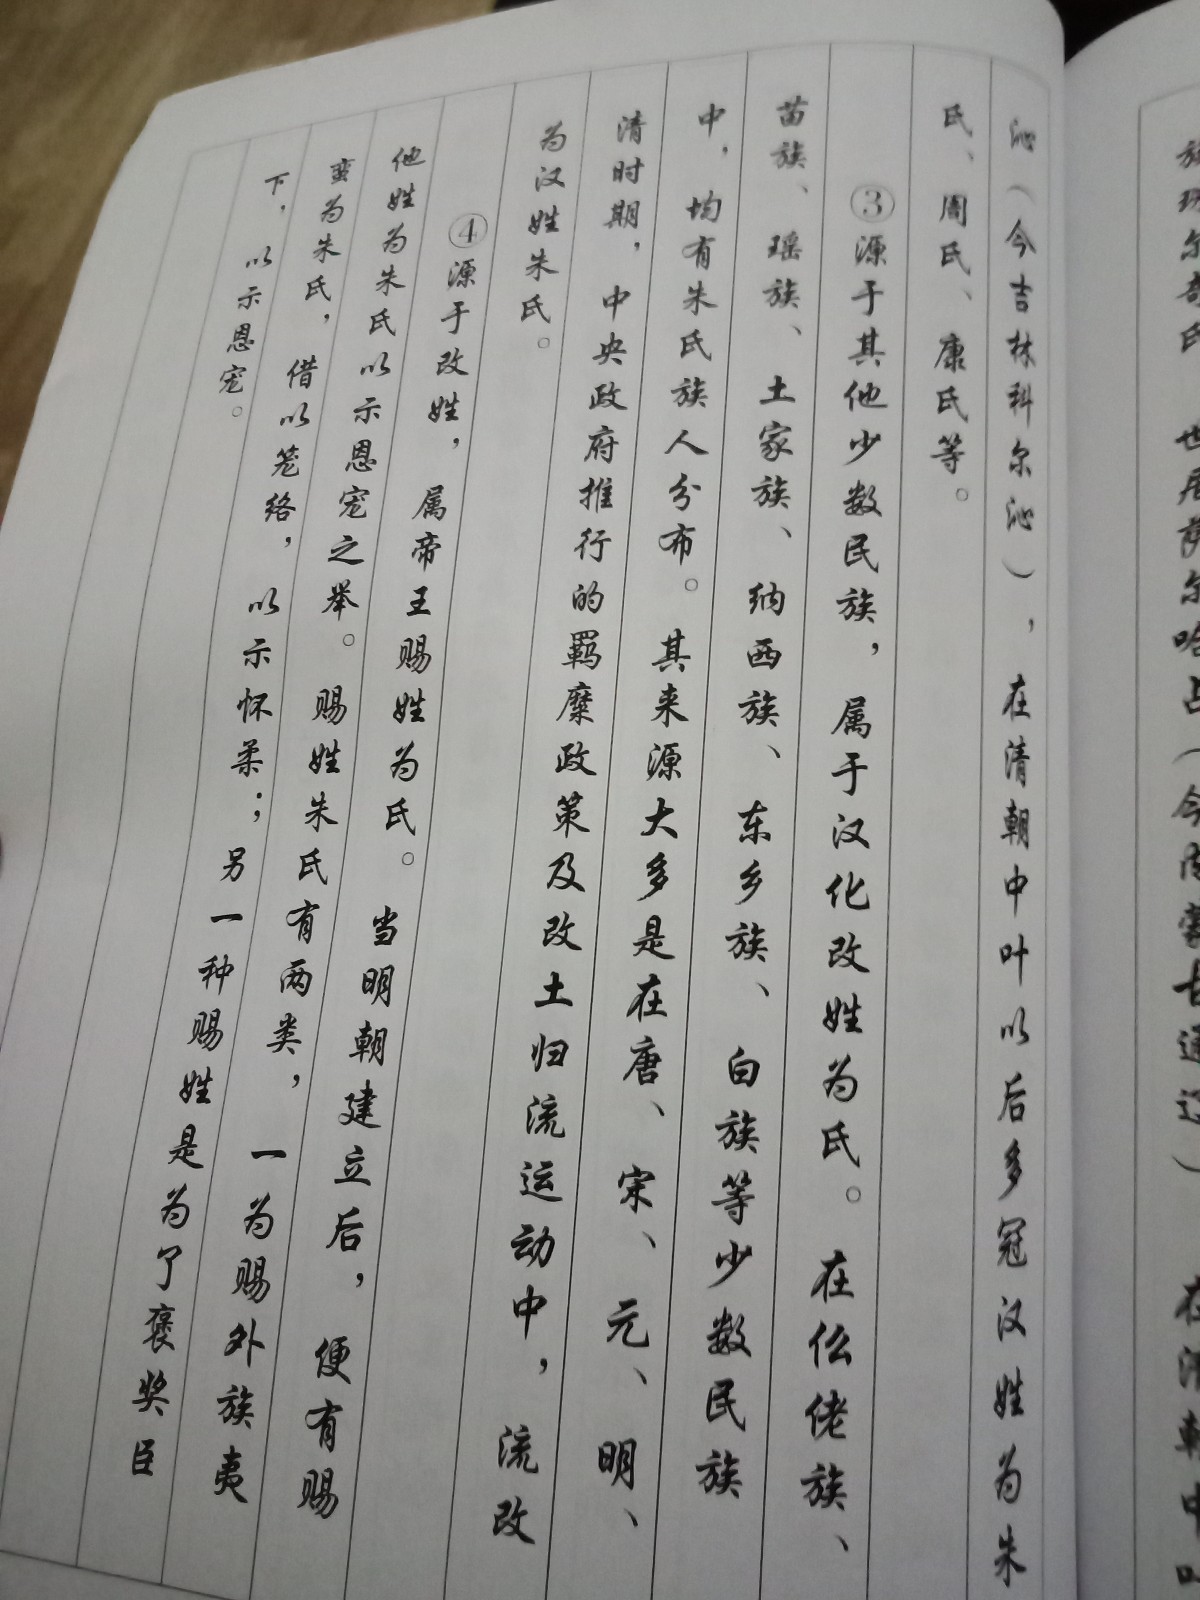 族
尔
氏
也居萨尔哈占（今内蒙古通辽）
在清朝中叶
沁（今吉林科尔沁），在清朝中叶以后多冠汉姓为朱
氏、周氏、康氏等。
③源于其他少数民族，属于汉化改姓为氏。在仫佬族、
苗族、瑶族、土家族、纳西族、东乡族、白族等少数民族
中，均有朱氏族人分布。其来源大多是在唐、宋、元、明、
清时期，中央政府推行的羁糜政策及改土归流运动中，流改
为汉姓朱氏。
④源于改姓，属帝王赐姓为氏。当明朝建立后，便有赐
他姓为朱氏以示恩宠之举。赐姓朱氏有两类，一为赐外族夷
蛮为朱氏，借以笼络，以示怀柔；另一种赐姓是为了褒奖臣
下，以示恩宠。